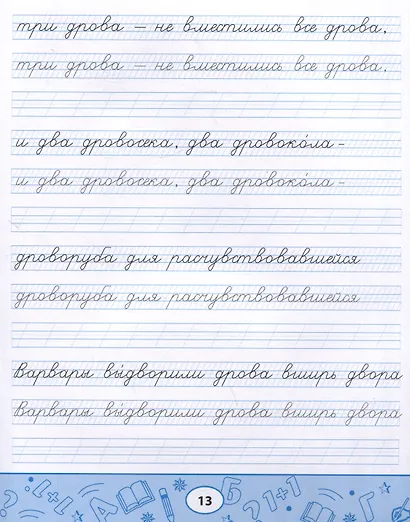 три дрова — не вместились все дрова,
три дрова — не вместились все дрова,
и два дровосека, два дровоко́ла -
и два дровосека, два дровоко́ла -
дроворуба для расчувствовавшейся
дроворуба для расчувствовавшейся
Варвары вы́дворили дрова вширь двора
Варвары вы́дворили дрова вширь двора
? 1+1 А 13 Б 21+1 Г